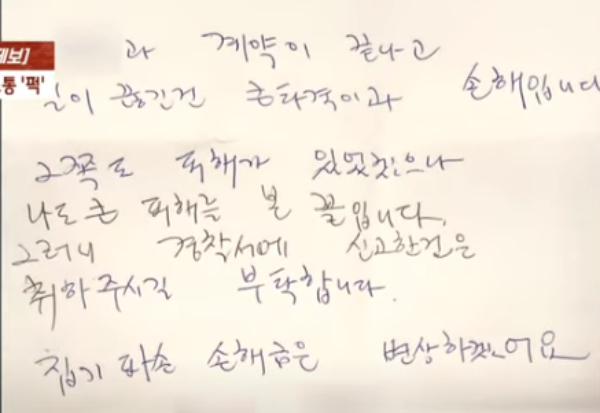 제보]
통 '퍽'
과 계약이 끝나고
일이 끊긴건 큰타격이과 손해입니다
그쪽도 피해가 있었겟으나
나도 큰 피해를 본 꼴입니다.
그러니 경찰서에 신고한건은
취하 주시길 부탁합니다.
집기 파손 손해금은 변상하겠어요